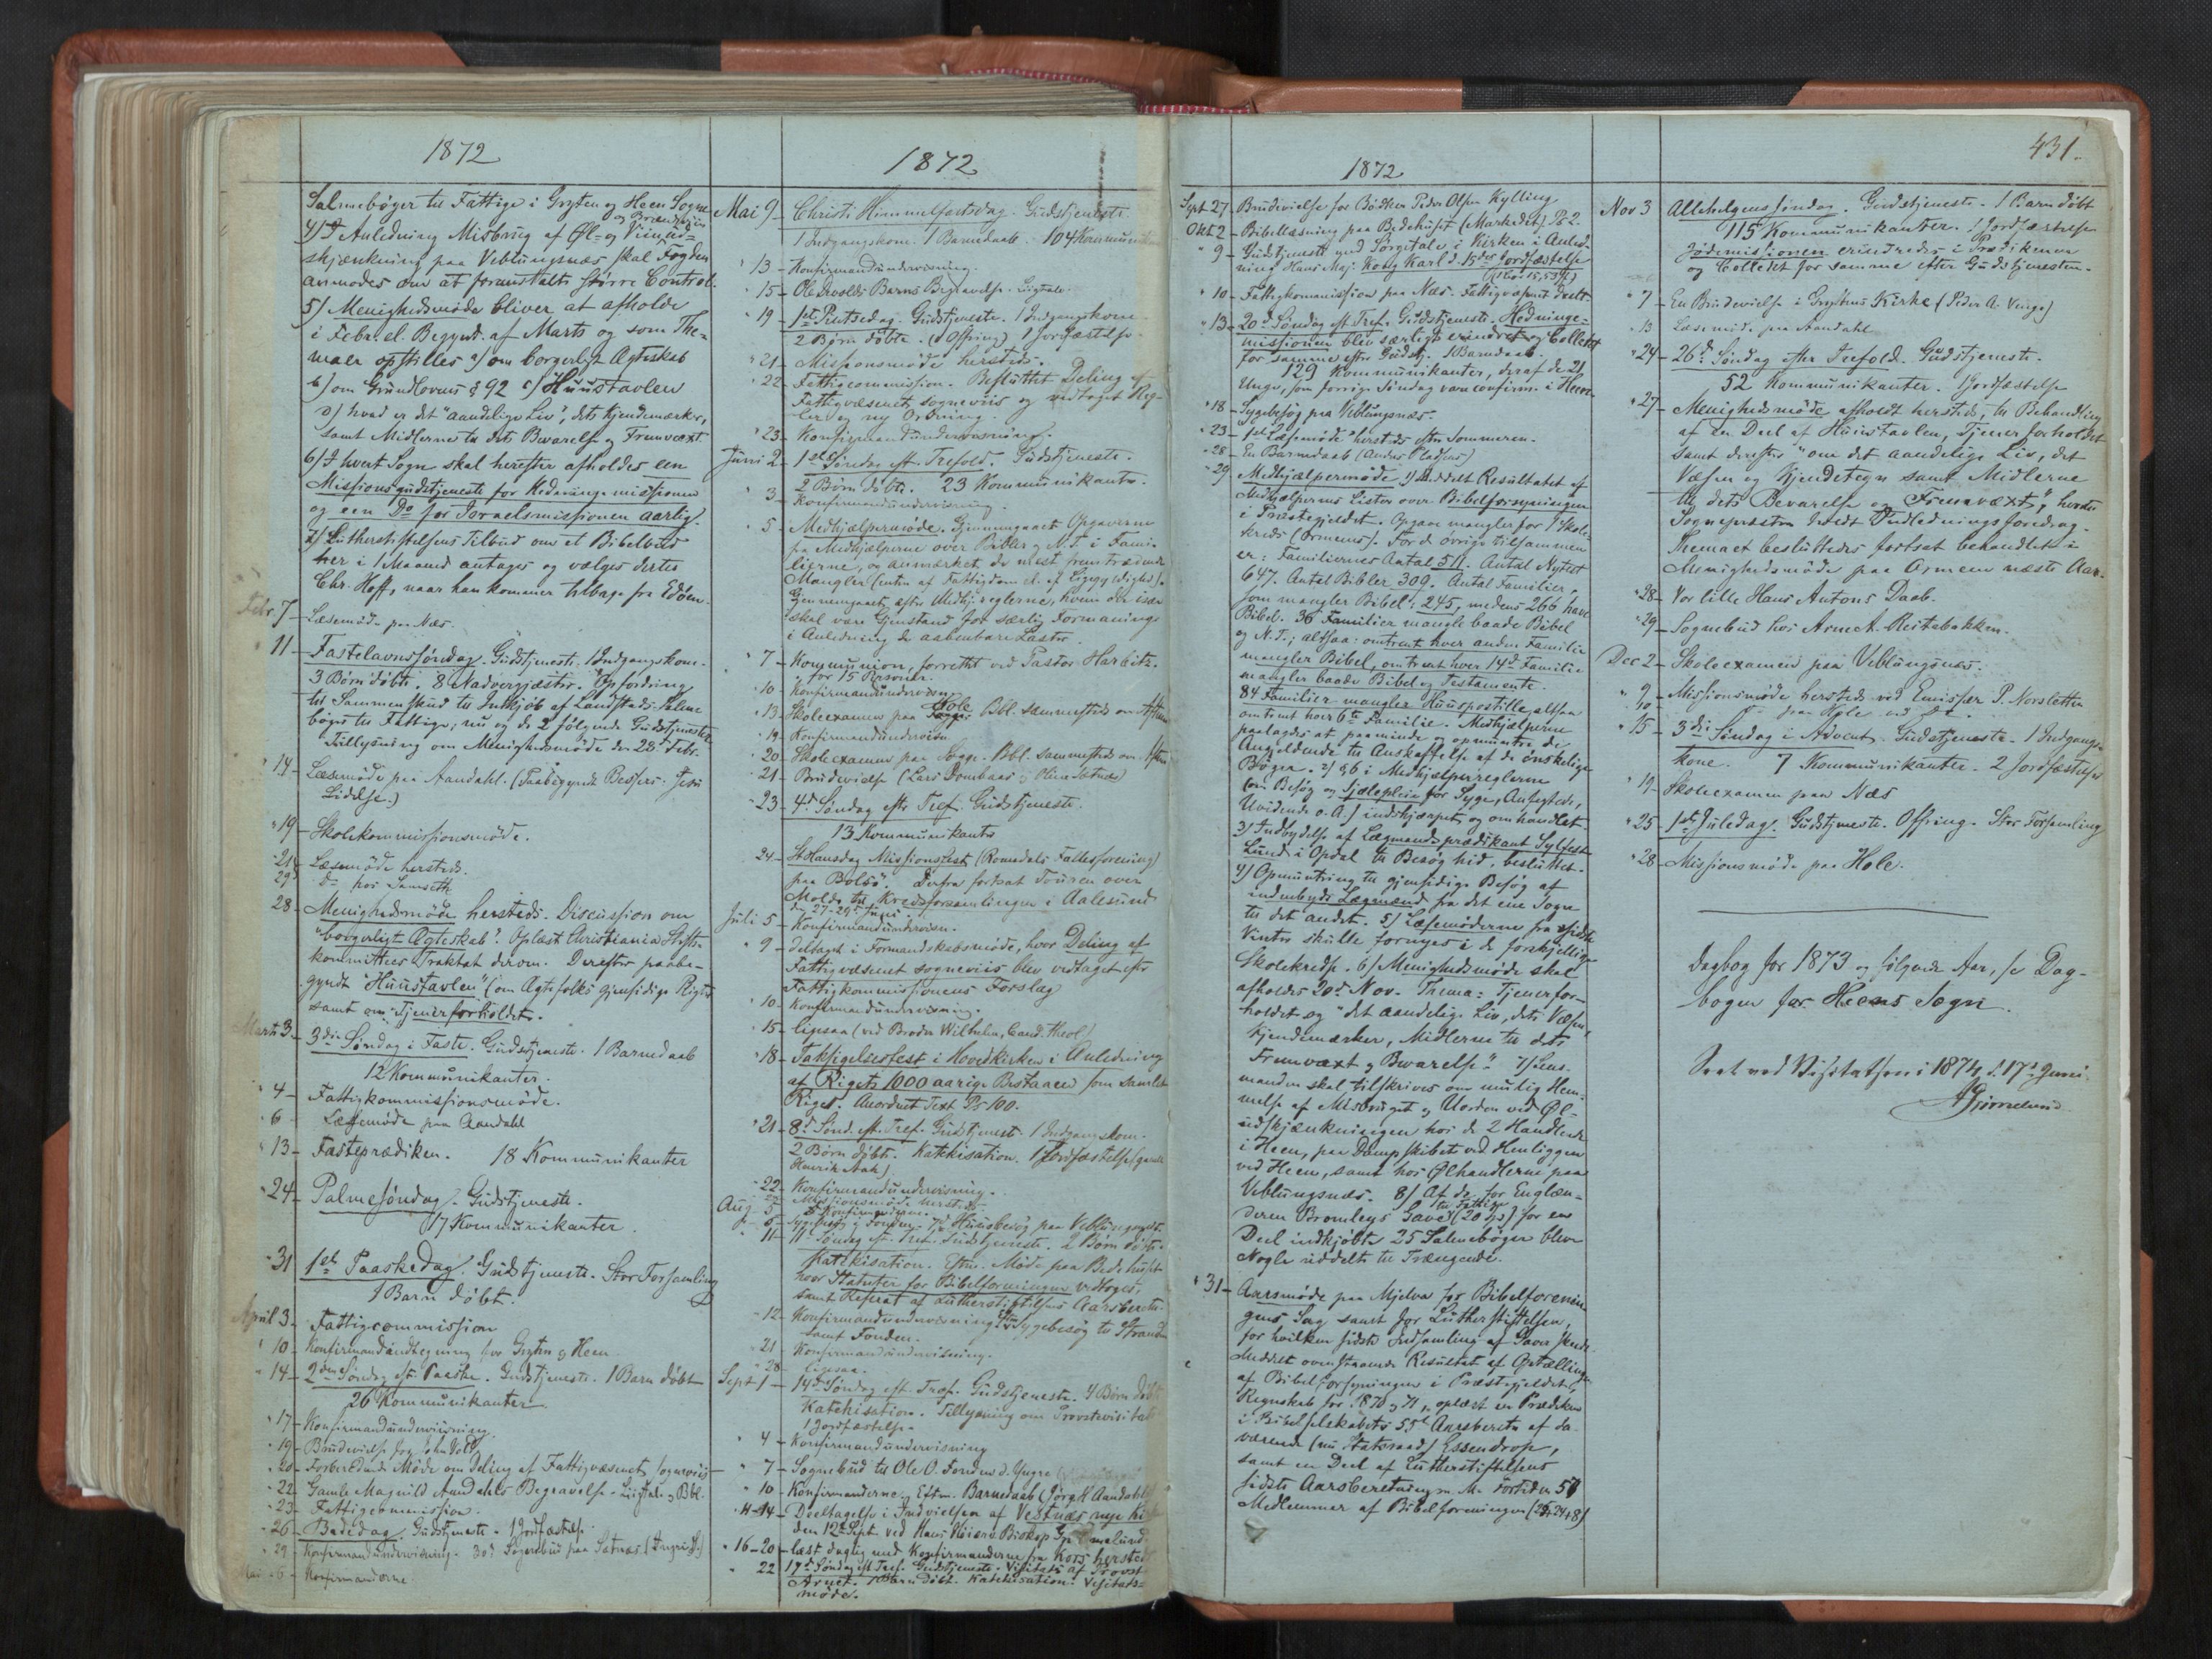 1872
Salmebøger til Fattige i Grytten og Heen Sogne
og Brændeviin
4) I Anledning Misbrug af Øl- og Viinud-
skjænkning paa Veblungsnæs skal Fogden
anmodes om at foranstalte større Control.
5) Menighedsmøde bliver at afholde
i Febr. el. Begynd. af Marts og som The-
maer opstilles a) om borgerligt Ægteskab
b) om Grundlovens § 92 c) Huustavlen
d) hvad er det "aandelige Liv", dets Kjendemærker,
samt Midlerne til dets Bevarelse og Fremvæxt
6) I hvert Sogn skal herefter afholdes een
Missionsgudstjeneste for Hedningemissionen
og een Do for Israelsmissionen aarlig.
7) Lutherstiftelsens Tilbud om et Bibelbud
her i 1 Maaned antages og vælges dertil
Chr. Hoff, naar han kommer tilbage fra Edøen.
Febr. 7 - Læsemøde paa Næs.
11 - Fastelavnssøndag. Gudstjeneste. 1 Indgangskone.
3 Børn døbte. 8 Nadvergjæster. Opfordring
til Sammenskud til Indkjøb af Landstads Salme
bøger til Fattige; nu og de 2 følgende Gudstjenester
Tillysning om Menighedsmøde den 28d Febr.
" 14 - Læsemøde paa Aandahl. (Paabegyndt Bessers Jesu
Lidelse.)
" 19 - Skolekommissionsmøde.
" 21 - Læsemøde hersteds.
29 do hos Samseth
28 - Menighedsmøde hersteds. Discussion om
"borgerligt Ægteskab". Oplæst Christiania Stifts-
kommittees Traktat derom. Derefter paabe-
gyndt "Huustavlen" (om Ægtefolks gjensidige Pligter
samt om Tjenerforholdet.
Marts 3 - 3die Søndag i Faste. Gudstjeneste. 1 Barnedaab
12 Kommunikanter.
" 4 - Fattigkommissionsmøde.
" 6 - Læsemøde paa Aandahl
" 13 - Fasteprædiken. 18 Kommunikanter
" 24 - Palmesøndag. Gudstjeneste.
17 Kommunikanter.
" 31 1ste Paaskedag. Gudstjeneste. Stor Forsamling
1 Barn døbt.
April 3 - Fattigcommission
" 10 - Konfirmandindtegning for Grytten & Heen
" 14 - 2den Søndag eft. Paaske. Gudstjeneste. 1 Barn døbt
26 Kommunikanter
" 17 - Konfirmandundervisning.
" 19 - Brudevielse for John Vold
" 20 - Forberedende Møde om Deling af Fattigvæsenet sogneviis
" 22 - Gamle Magnild Aandahls Begravelse. Liigtale og Bbl.
" 23 - Fattigcommission.
" 26 - Bededag. Gudstjeneste. 1 Jordfæstelse.
" 29 - Konfirmandundervisning. 30d Sognebud paa Sætnæs
Mai 6 - Konfirmanderne.
1872
Mai 9 - Christi Himmelfartsdag. Gudstjeneste.
1 Indgangskone. 1 Barnedaab. 104 Kommunikanter
" 13 - Konfirmandundervisning.
" 15 - Ole Devolds Barns Begravelse. Liigtale.
" 19 - 1ste Pintsedag. Gudstjeneste. 1 Indgangskone
2 Børn døbte. (1 Offring) 1 Jordfæstelse.
" 21 - Missionsmøde hersteds.
" 22 - Fattigcommission. Besluttet Deling af
Fattigvæsenet sogneviis og vedtaget Reg-
ler og ny Ordning.
" 23 - Konfirmandundervisning.
Juni 2 - 1ste Søndag eft. Trefold. Gudstjeneste.
2 Børn døbte. 23 Kommunikanter.
" 3 - Konfirmandundervisning.
" 5 - Medhjælpermøde. Gjennemgaaet Opgaverne
fra Medhjælperne over Bibler og N.T. i Fami-
lierne, og anmærket de mest fremtrædende
Mangler (enten af Fattigdom el. af Ligegyldighed).
Gjennemgaaet efter Medhj.reglerne, hvem der især
skal være Gjenstand for særlig Formaning
i Anledning de aabenbare Laster.
" 7 - Kommunion, forrettet ved Pastor Harbitz.
for 15 Personer.
" 10 - Konfirmandundervisn.
" 13 - Skoleexamen paa Hole. Bbl. sammesteds om Aftenen
" 19 - Konfirmandundervisn.
" 20 - Skoleexamen paa Sogge. Bbl. sammesteds om Aften
" 21 - Brudevielse (Lars Dombaas
" 23 - 4de Søndag efter Tref. Gudstjeneste.
13 Kommunikanter
" 24 - St Hansdag Missionsfest (Romsdals Fællesforening)
paa Bolsø. Derfra fortsat Touren over
Molde til Kredsforsamlingen i Aalesund
den 27-29de Juni.
Juli 5 - Konfirmandundervisn.
" 9 - Deltaget i Formandskabsmøde, hvor Deling af
Fattigvæsenet sogneviis blev vedtaget efter
Fattigkommissionens Forslag
" 10 - Konfirmandundervisning.
" 15 - ligesaa (ved Broder Wilhelm, Cand. theol.)
" 18 - Taksigelsesfest i Hovedkirken i Anledning
af Rigets 1000 aarige Bestaaen som samlet
Rige. Anordnet Text Ps 100.
" 21 - 8de Sønd. eft. Tref. Gudstjeneste. 1 Indgangskone.
2 Børn døbte. Katekisation. 1 Jordfæstelse (gamle
Henrik Aak).
" 22 - Konfirmandundervisning.
Missionsmøde hersteds.
Aug 5 - Konfirmanderne.
" 6 - Sygebesøg Fonden. 7d Huusbesøg paa Veblungsnæs.
" 11 - 11te Søndag eft. Tref. Gudstjeneste. 2 Børn døbte.
Katekisation. Eftm. Møde paa Bedehuset
hvor Statuter for Bibelforeningen vedtoges,
samt Referat af Lutherstiftelsens Aarsberetn.
" 12 - Konfirmandundervisning. Eftm. Sygebesøg til Strande
samt Fonden.
" 21 - Konfirmandundervisning.
" 28 - ligesaa.
Sept 1 - 14de Søndag eft. Tref. Gudstjeneste. 4 Børn døbte
Katekisation. Tillysning om Provstevisitats
1 Jordfæstelse.
" 4 - Konfirmandundervisning
" 7 - Sognebud til Ole O. Fonden d. Yngre
" 10 - Konfirmanderne. Eftm. Barnedaab (Jørg. K. Aandahls)
" 11-14 - Deeltagelse i Indvielsen af Vestnæs nye Kirke
den 12te Sept. ved Hans Høiærv. Biskop Grimelund
" 16-20 - læst daglig med Konfirmanderne fra Kors hersteds
" 22 17de Søndag eft. Tref. Gudstjeneste. Visitats af Provst
Arnet. 1 Barn døbt. Katekisation. Visitats-
møde.
1872
Sept 27 - Brudevielse for Bødker Peder Olsen Kylling
Okt 2 - Bibellæsning paa Bedehuset (Markedet). Ps 2.
" 9 - Gudstjeneste med Sørgetale i Kirken i Anled-
ning Hans Maj: Kong Karl d. 15des Jordfæstelse
(1 Cor. 15, 53 ff)
" 10 - Fattigkommission paa Næs. Fattigvæsenet deelt.
" 13 - 20d Søndag eft. Tref. Gudstjeneste. Hedninge-
missionen blev særligt erindret og Collekt
for samme efter Gudstj. 1 Barnedaab.
129 Kommunikanter, deraf de 21
Unge, som forrige Søndag vare confirm. i Heen
" 18 - Sygebesøg paa Veblungsnæs.
" 23 - 1ste Læsemøde hersteds efter Sommeren.
" 28 - En Barnedaab (Anders Pladsens)
" 29 - Medhjælpermøde 1) Meddelt Resultatet af
Medhjælpernes Lister over Bibelforsyningen
i Præstegjeldet. Opgave mangler for 1 Skole-
kreds (Ormems). For d. øvrige tilsammen
er: Familiernes Antal 511. Antal Nytest
647. Antal Bibler 309. Antal Familier,
som mangler Bibel: 245, medens 266 have
Bibel. 36 Familier mangle baade Bibel
og N.T.; altsaa: omtrent hver anden Familie
mangler Bibel, omtrent hver 14de Familie
mangler baade Bibel og Testamente.
84 Familier mangler Huuspostille, altsaa
omtrent hver 6te Familie. Medhjælperne
paalagdes at paaminde og opmuntre de
Angjeldende til Anskaffelse af de ønskelige
Bøger. 2) § 6 i Medhjælperreglerne
(om Besøg og Sjælepleie for Syge, Anfægtede,
Uvidende o. A.) indskjærpet og omhandlet.
3) Indbydelse af Lægmandsprædikant Sylfest
Lund i Opdal til Besøg hid, besluttet.
4) Opmuntring til gjensidige Besøg af
indenbygds Lægmænd fra det ene Sogn
til det andet. 5) Læsemøderne fra sidste
Vinter skulle fornyes i de forskjellige
Skolekredse. 6) Menighedsmøde skal
afholdes 20de Nov. Thema: Tjenerfor-
holdet og "det aandelige Liv, dets Væsen
Kjendemærker, Midlerne til dets
Fremvæxt og Bevarelse." 7) Lens-
manden skal tilskrives om mulig Hem-
melse af Misbruget og Uorden ved Øl-
udskjænkningen hos de 2 Handlende
i Heen, paa Dampskibet ved Henliggen
ved Heen, samt hos Ølhandlerne paa
Veblungsnæs. 8) Af de for Englæn-
til Fattige
deren Bromleys Gave (20 Spd) for en
Deel indkjøbte 25 Salmebøger bleve
Nogle uddelte til Trængende.
" 31 - Aarsmøde paa Mjelva for Bibelforenin-
gens Sag samt for Lutherstiftelsen,
for hvilken sidste Indsamling af Gaver skede.
Meddelt ovenstaaende Resultat af Optælling
af Bibelforsyningen i Præstegjeldet,
Regnskab for 1870 og 71, oplæst en Prædiken
i Bibelselskabets 55de Aarsberetn. af da-
værende (nu Statsraad) Essendrop,
samt en Deel af Lutherstiftelsens
sidste Aarsberetning m. M. Fortiden 57
Medlemmer af Bibelforeningen (25+24+8)
431.
Nov 3 Allehelgens Søndag. Gudstjeneste. 1 Barn døbt
115 Kommunikanter. 1 Jordfæstelse
Jødemissionen erindredes i Prædikenen
og Collekt for samme efter Gudstjenesten.
" 7 - En Brudevielse i Gryttens Kirke (Peder A. Venge)
" 13 Læsemøde paa Aandahl
" 24 - 26d Søndag efter Trefold. Gudstjeneste.
52 Kommunikanter. 1 Jordfæstelse
" 27 - Menighedsmøde afholdt hersteds, til Behandling
af en Deel af Huustavlen, Tjenerforholdet
samt derefter "om det aandelige Liv, det
Væsen og Kjendetegn samt Midlerne
til dets Bevarelse og Fremvæxt", hvorfor
Sognepræsten holdt Indledningsforedrag.
Themaet besluttedes fortsat behandlet i
Menighedsmøde paa Ormeem næste Aar.
" 28 - Vor lille Hans Antons Daab.
" 29 - Sognebud hos Arne A. Reitebakken.
Dec 2 - Skoleexamen paa Veblungsnæs.
" 9 - Missionsmøde hersteds ved Emissær P. Norsletten
" 10 - do paa Hole ved do.
" 15 - 3die Søndag i Advent. Gudstjeneste. 1 Indgangs-
kone. 7 Kommunikanter. 2 Jordfæstelser
" 19 - Skoleexamen paa Næs
" 25 - 1ste Juledag. Gudstjeneste. Offring. Stor Forsamling
" 28 - Missionsmøde paa Hole.
Dagbog for 1873 og følgende Aar, se Dag-
bogen for Heens Sogn.
Seet ved Visitatsen i 1874 d. 17de Juni.
AGrimelund